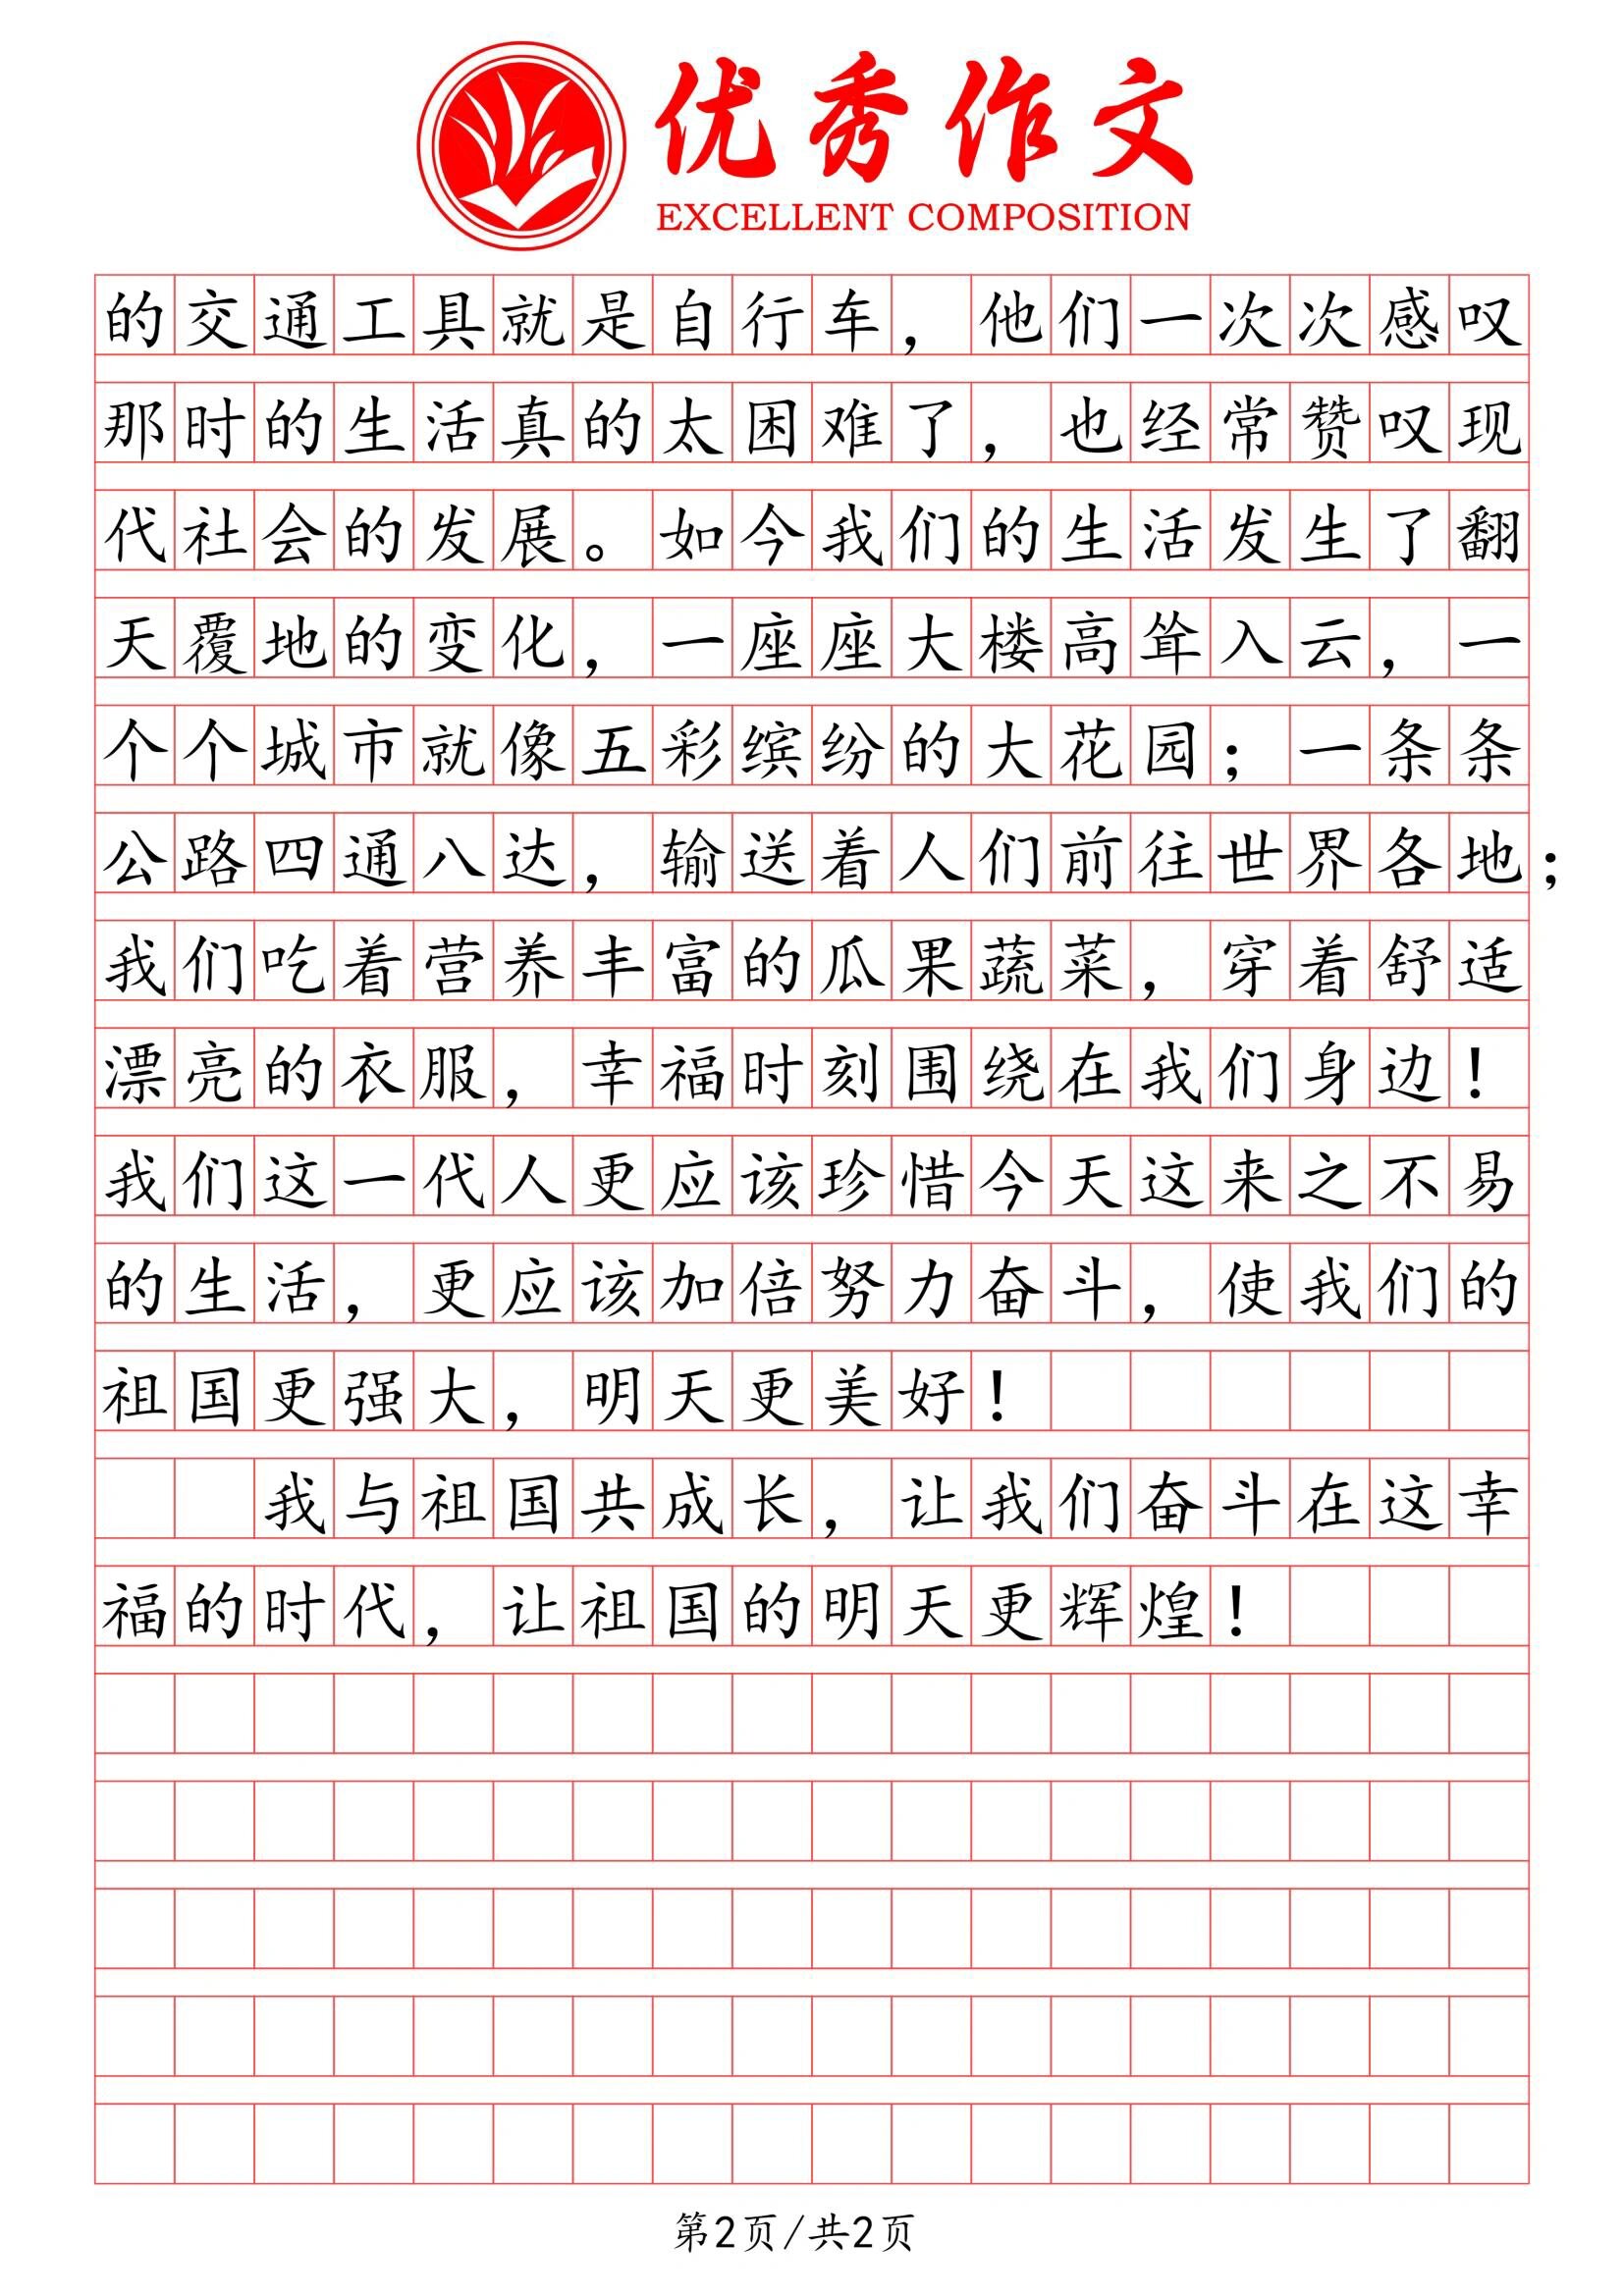 优秀作文
EXCELLENT COMPOSITION
的交通工具就是自行车，他们一次次感叹
那时的生活真的太困难了，也经常赞叹现
代社会的发展。如今我们的生活发生了翻
天覆地的变化，一座座大楼高耸入云，一
个个城市就像五彩缤纷的大花园；一条条
公路四通八达，输送着人们前往世界各地；
我们吃着营养丰富的瓜果蔬菜，穿着舒适
漂亮的衣服，幸福时刻围绕在我们身边！
我们这一代人更应该珍惜今天这来之不易
的生活，更应该加倍努力奋斗，使我们的
祖国更强大，明天更美好！
我与祖国共成长，让我们奋斗在这幸
福的时代，让祖国的明天更辉煌！
第2页/共2页